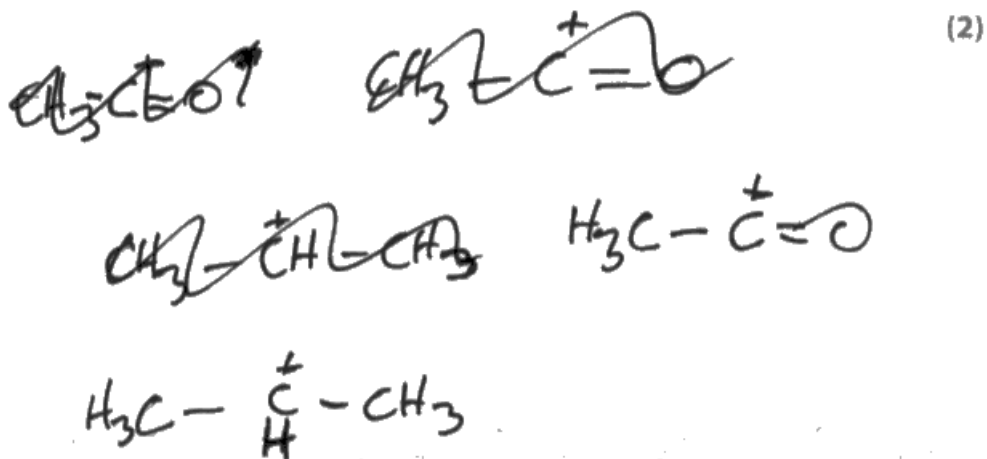 (2)
CH₃-C⁺=O CH₃-C⁺=O
CH₃-C⁺H-CH₃ H₃C-C⁺=O
H₃C-C⁺-CH₃
H